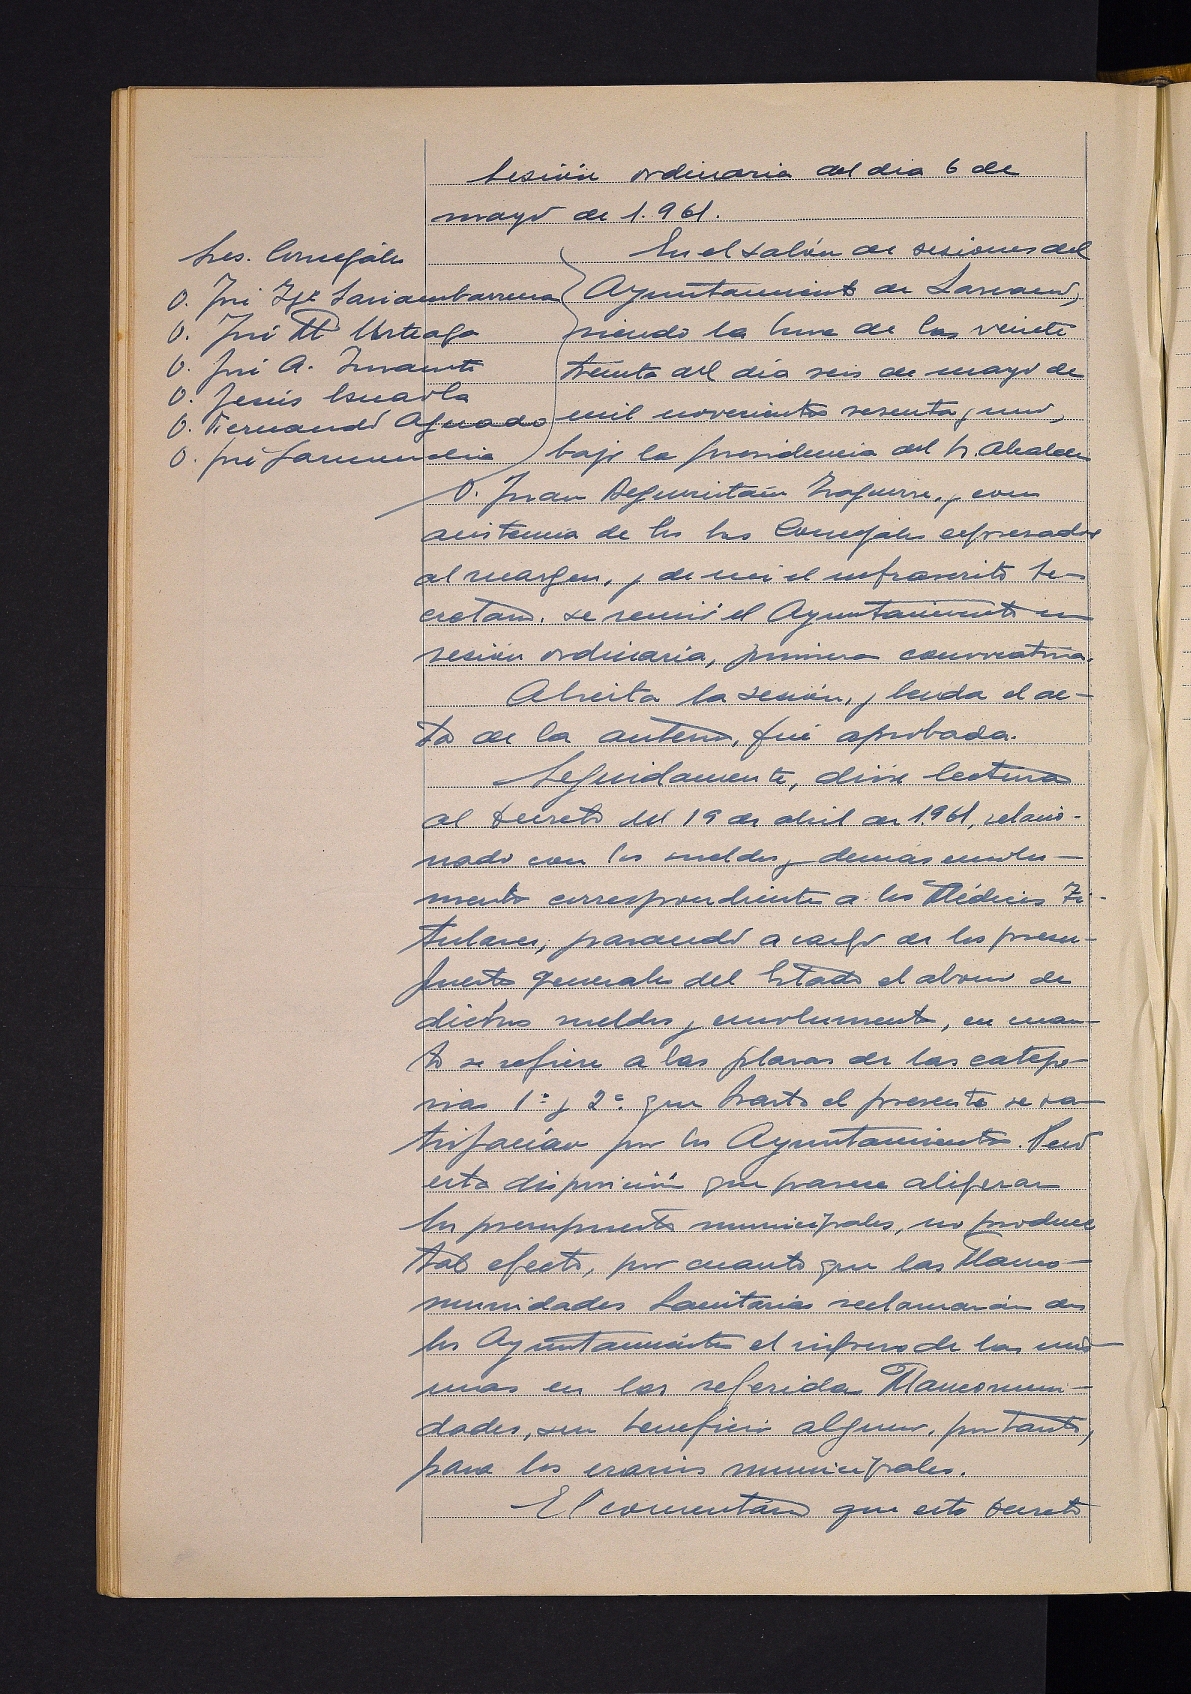 Sesión ordinaria del dia 6 de
mayo de 1.961.
Sres. Concejales
D. José Igº Sariambarrena
D. José Mª Urteaga
D. José A. Insausti
D. Jesús
D. Fernando Aguado
D. José Garmendia
En el salón de sesiones del
Ayuntamiento de Lazcano,
siendo la hora de las veinte
treinta del día seis de mayo de
mil novecientos sesenta y uno,
bajo la presidencia del Sr. Alcalde
D. Juan Aseguinolaza Izaguirre, y con
asistencia de los Sres Concejales expresados
al margen, y de mí el infrascrito Se-
cretario, se reunió el Ayuntamiento en
sesión ordinaria, primera convocatoria.
Abierta la sesión, y leida el ac-
ta de la anterior, fué aprobada.
Seguidamente, dióse lectura
al Decreto del 19 de abril de 1961, relacio-
nado con los sueldos y demás emolu-
mentos correspondientes a los Médicos Ti-
tulares, pasando a cargo de los presu-
puestos generales del Estado el abono de
dichos sueldos y emolumentos, en cuan-
to se refiere a las plazas de las catego-
rias 1ª y 2ª que hasta el presente se sa-
tisfacían por los Ayuntamientos. Pero
esta disposición que parece aligerar
los presupuestos municipales, no produce
tal efecto, por cuanto que las Manco-
munidades Sanitarias reclamarán de
los Ayuntamientos el ingreso de las mis-
mas en las referidas Mancomuni-
dades, sin beneficio alguno, por tanto,
para los erarios municipales.
El comentario que este Decreto